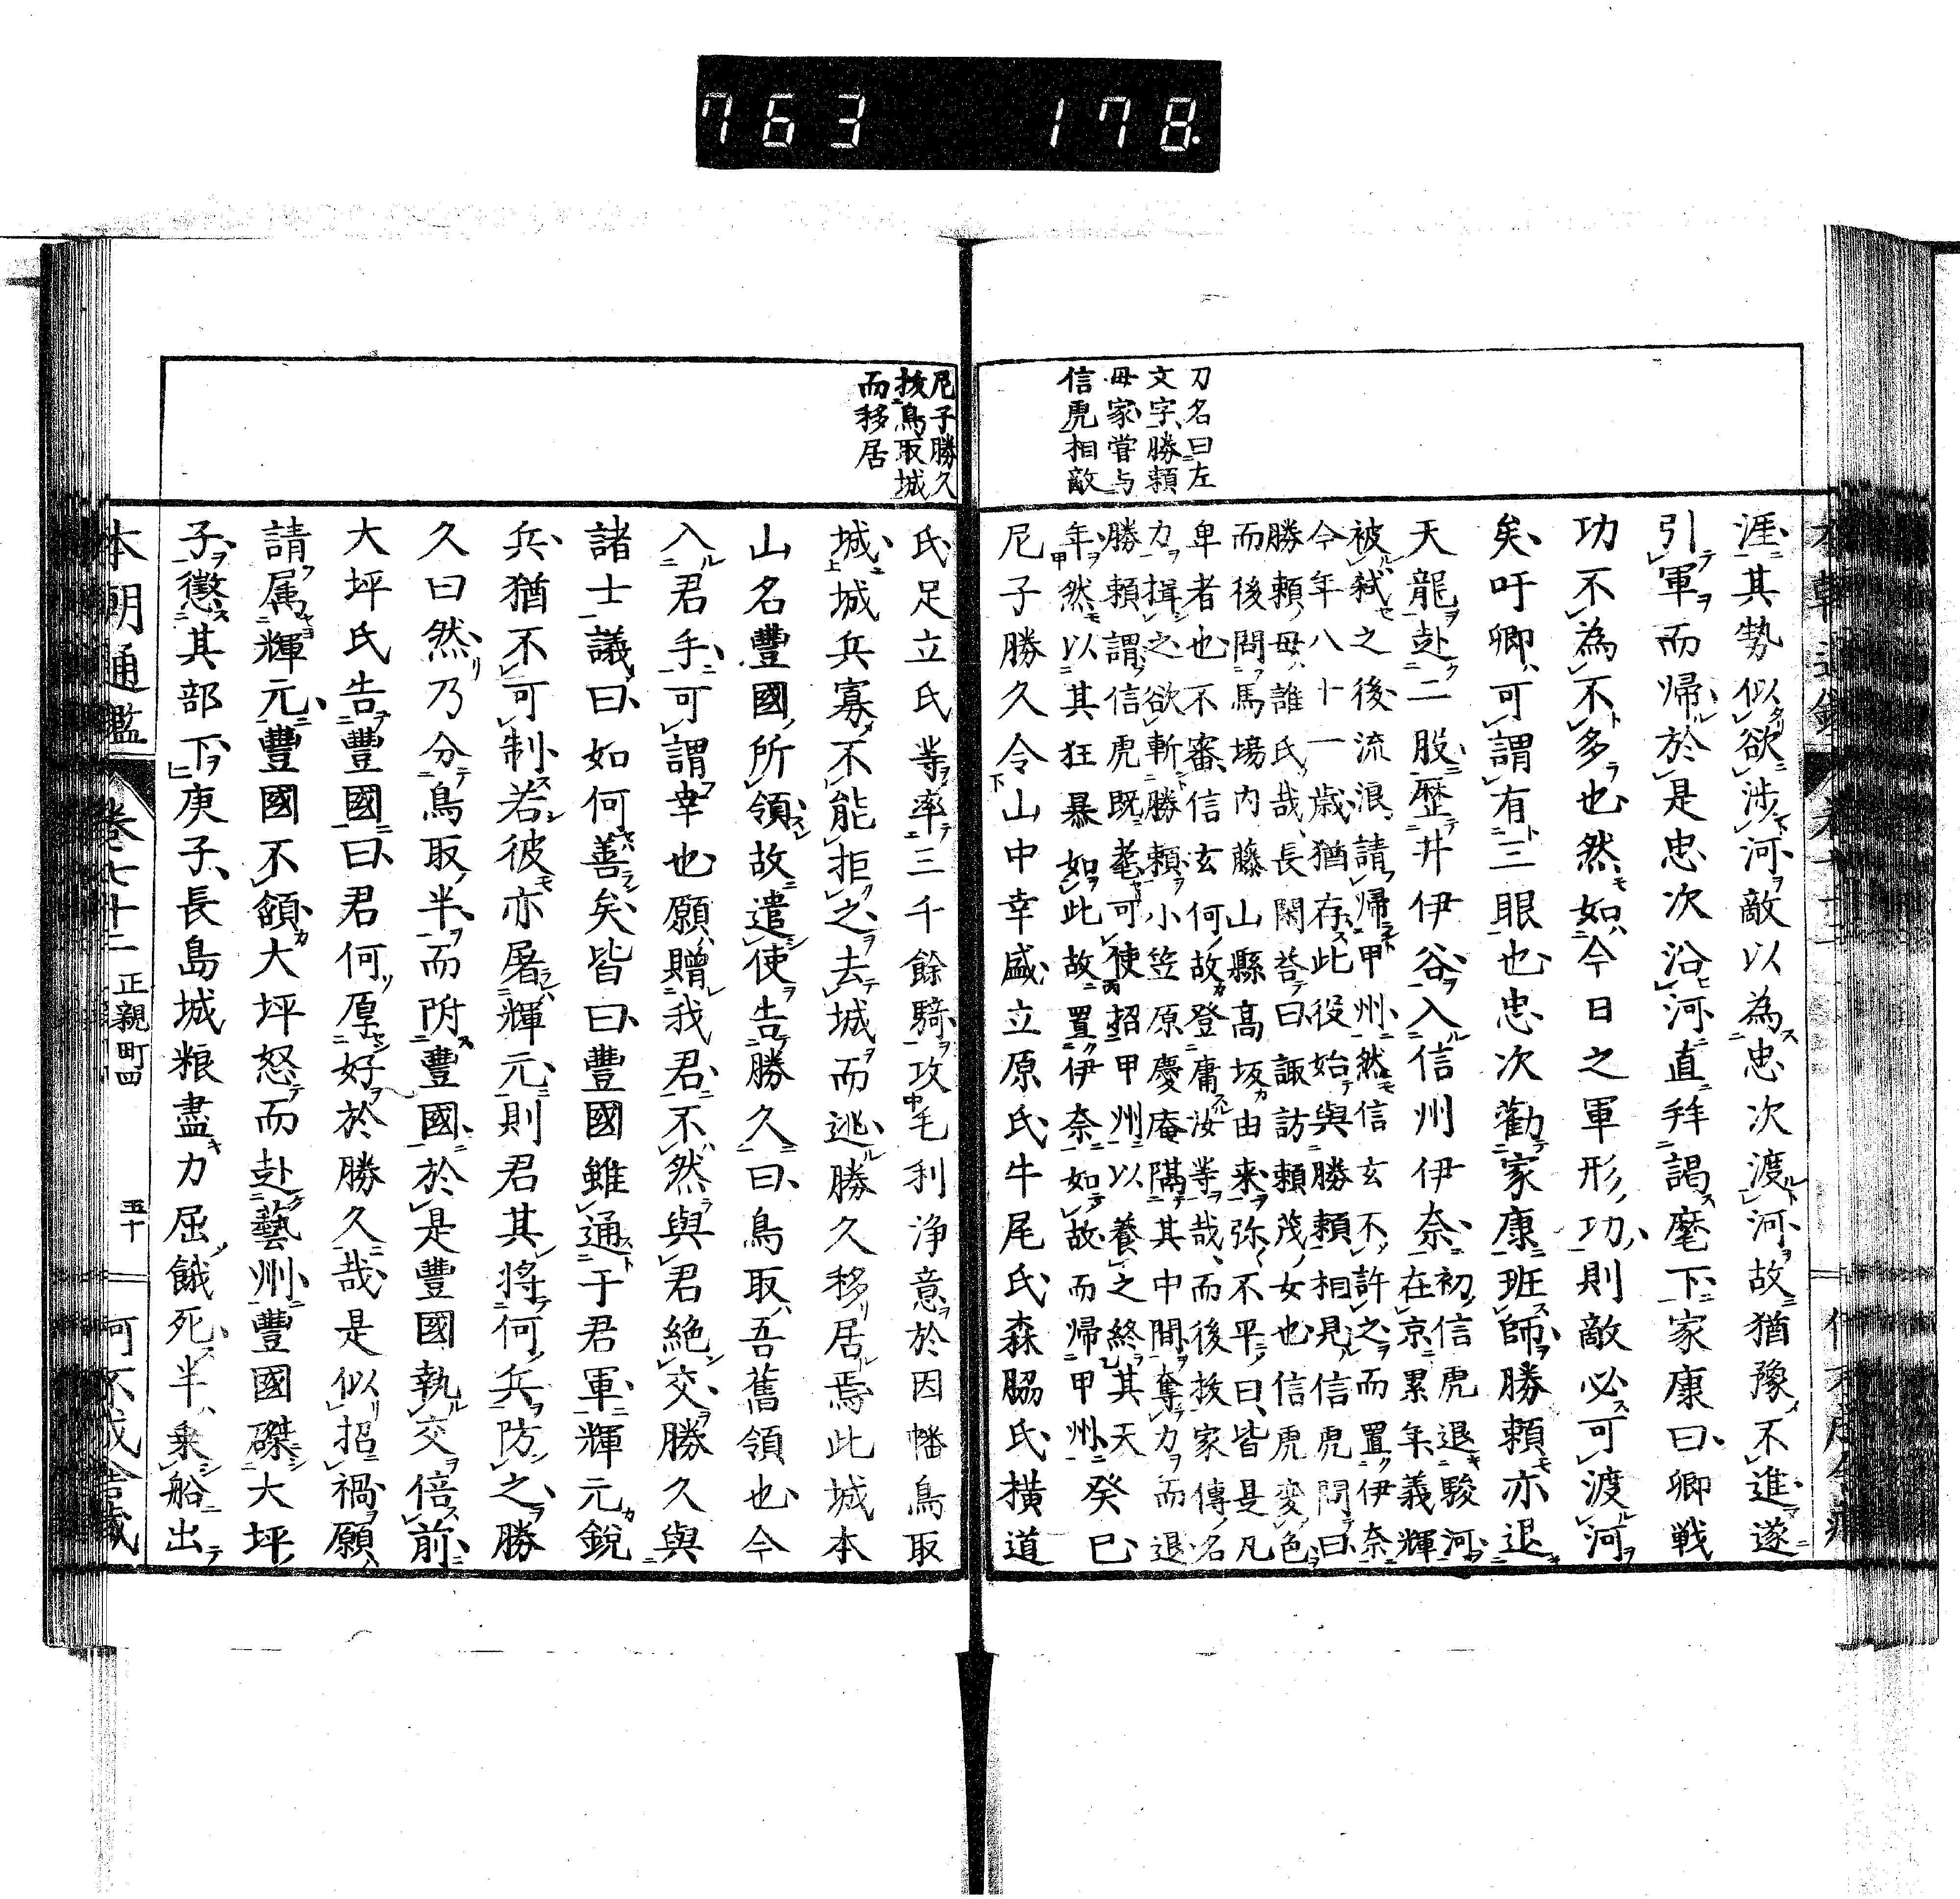 763 178
刀名曰左
文字勝頼
母家嘗与
信虎相敵
涯其勢似欲渉河敵以為忠次渡河故猶豫不進遂
引軍而帰於是忠次沿河直拜謁麾下家康曰卿戦
功不為不多也然如今日之軍形功則敵必可渡河
矣吁卿可謂有三眼也忠次勸家康班師勝頼亦退
天龍赴二股歴井伊谷入信州伊奈
初信虎退駿河
在京累年義輝
被弑之後流浪請帰甲州然信玄不許之而置伊奈
今年八十一歳猶存此役始與勝頼相見信虎問曰
勝頼母誰氏哉長閑荅曰諏訪頼茂女也信虎変色
而後問馬場内藤山縣高坂由来弥不平曰皆是凡
卑者也不審信玄何故登庸汝等哉而後抜家傳名
刀揖之欲斬勝頼小笠原慶庵隔其中間奪刀而退
勝頼謂信虎既耄可使招甲州以養之終其天
年然以其狂暴如此故置伊奈如故而帰甲州
癸巳
尼子勝久令山中幸盛立原氏牛尾氏森脇氏横道
尼子勝久
抜鳥取城
而移居
氏足立氏等率三千餘騎攻毛利浄意於因幡鳥取
城城兵寡不能拒之去城而逃勝久移居焉此城本
山名豐國所領故遣使告勝久曰鳥取吾舊領也今
入君手可謂幸也願贈我君不然與君絶交勝久與
諸士議曰如何善矣皆曰豐國雖通于君軍輝元鋭
兵猶不可制若彼亦屠輝元則君其将何兵防之勝
久曰然乃分鳥取半而附豐國於是豐國執交倍前
大坪氏告豐國曰君何厚好於勝久哉是似招禍願
請属輝元豐國不頷大坪怒而赴藝州豐國磔大坪
子懲其部下庚子長島城粮盡力屈餓死半乗船出
本朝通鑑 卷七十二 正親町四 五十